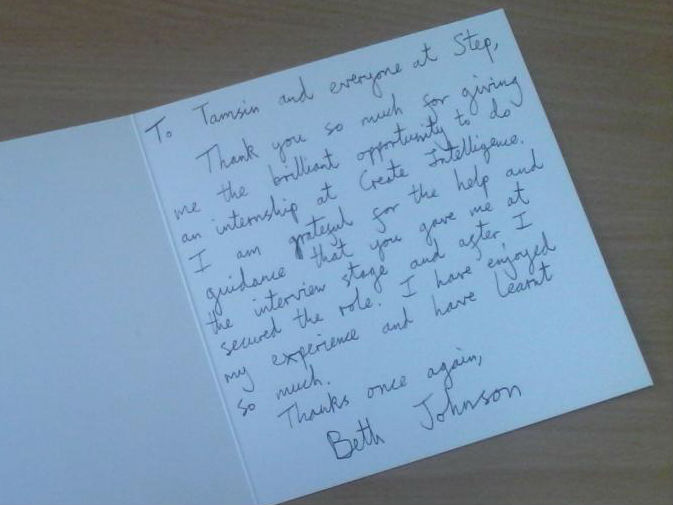 To Tamsin and everyone at Step,
Thank you so much for giving
me the brilliant opportunity to do
an internship at Create Intelligence.
I am grateful for the help and
guidance that you gave me at
the interview stage and after I
secured the role. I have enjoyed
my experience and have learnt
so much.
Thanks once again,
Beth Johnson